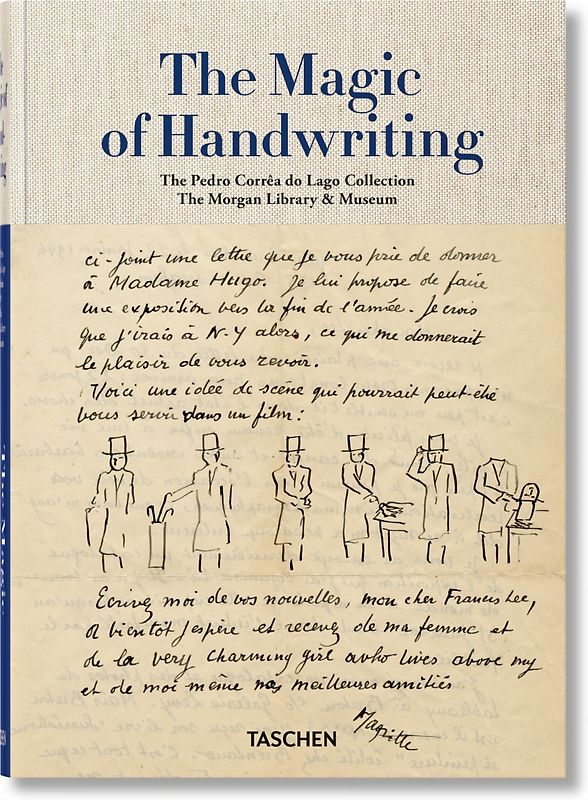 The Magic
of Handwriting
The Pedro Corrêa do Lago Collection
The Morgan Library & Museum
ci-joint une lettre que je vous prie de donner
à Madame Hugo. Je lui propose de faire
une exposition vers la fin de l'année. Je crois
que j'irais à N-Y alors, ce qui me donnerait
le plaisir de vous revoir.
Voici une idée de scéne qui pourrait peut-étre
vous servir dans un film:
Ecrivez moi de vos nouvelles, mon cher Francis Lee,
A bientôt j'espère et recevez de ma femme et
de la very charming girl who lives above my
et de moi même nos meilleures amitiés
Magritte
TASCHEN